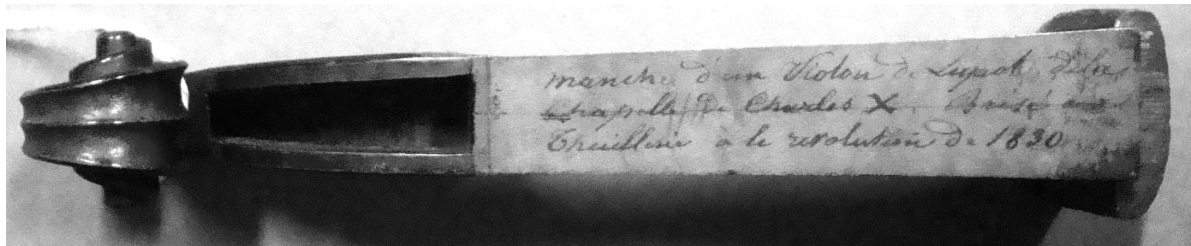 manche d'un Violon de Lupot de la
Chapelle De Charles X. Brisé aux
Thuillerie à la revolution de 1830